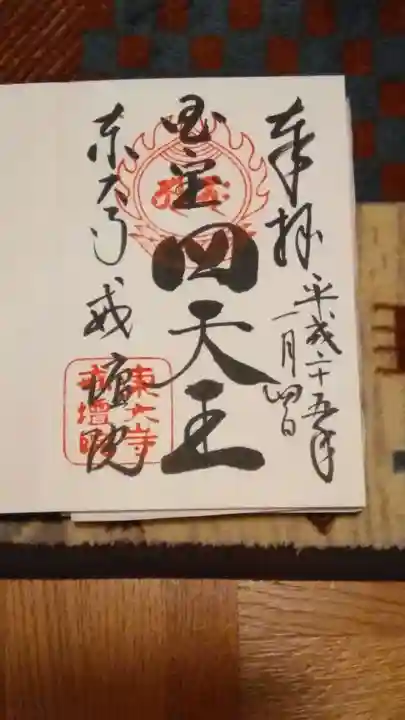 奉拝
平成二十五年
一月四日
国宝
四天王
東大寺戒壇院
東大寺
戒壇院